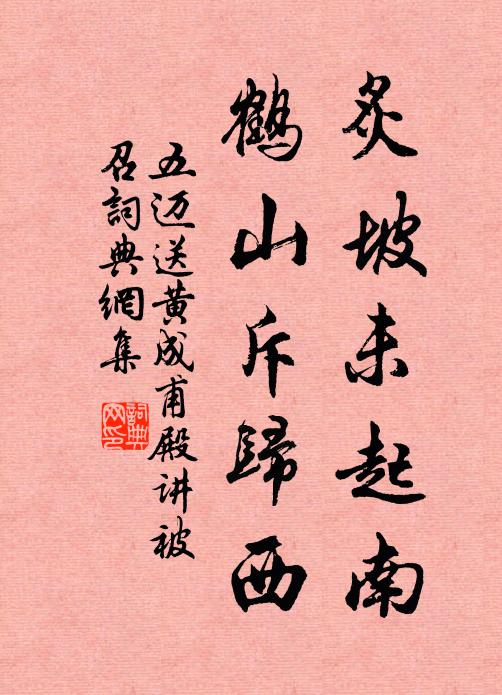 炙坡未起南
鹤山斥歸西
五迈送黄成甫殿讲被
召詞典網集
詞典网印